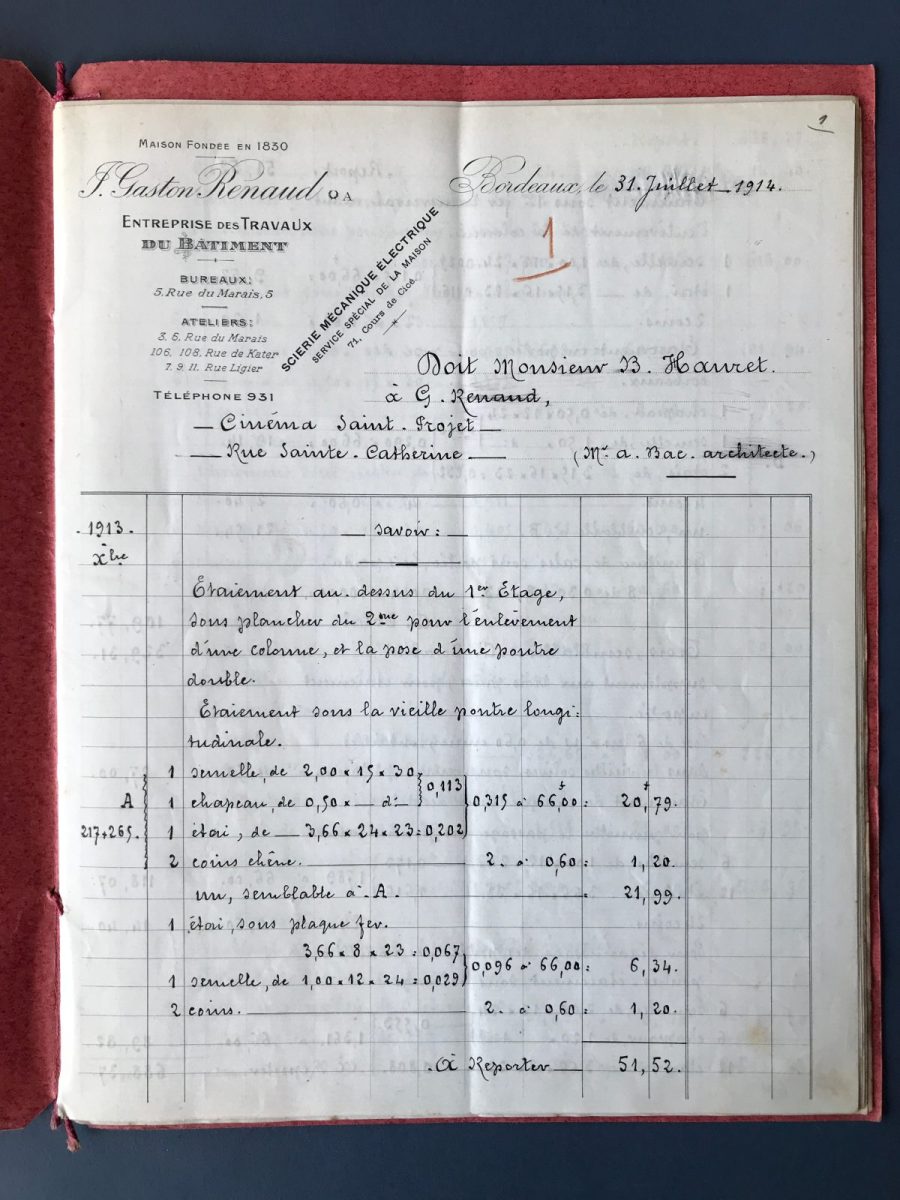 1
MAISON FONDÉE EN 1830
J. Gaston Renaud O A
ENTREPRISE DES TRAVAUX
DU BÂTIMENT
BUREAUX:
5. Rue du Marais, 5
ATELIERS:
3. 6. Rue du Marais
106. 108. Rue de Kater
7. 9. 11. Rue Ligier
TÉLÉPHONE 931
SCIERIE MÉCANIQUE ÉLECTRIQUE
SERVICE SPÉCIAL DE LA MAISON
71, Cours de Cicé.
Bordeaux, le 31. Juillet 1914.
1
Doit Monsieur B. Hauret.
à G. Renaud,
— Cinéma Saint-Projet —
— Rue Sainte-Catherine — (Mr. A. Bac. architecte.)
1913. — Savoir: —
Xbre
Etaiement au-dessus du 1er Etage,
sous plancher du 2me pour l'enlèvement
d'une colonne, et la pose d'une poutre
double.
Etaiement sous la vieille poutre longi:
tudinale.
1 semelle, de 2,00 × 15 × 30,
0,113
A 1 chapeau, de 0,50 × — d: — 0,315 à 66,00 = 20,79.
217+265. 1 étai, de — 3,66 × 24 × 23 = 0,202
2 coins chêne. — 2. à 0,60 = 1,20.
un, semblable à A. = 21,99.
1 étai, sous plaque fer.
3,66 × 8 × 23 = 0,067
0,096 à 66,00 = 6,34.
1 semelle, de 1,00 × 12 × 24 = 0,029
2 coins. — 2. à 0,60 = 1,20.
à Reporter — 51,52.